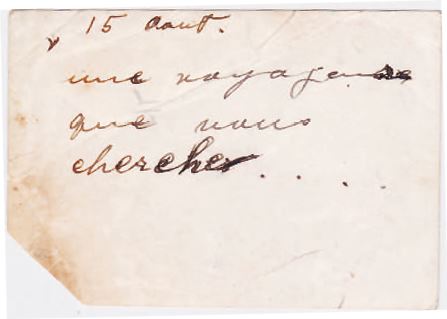 15 Aout.
une voyageuse
que vous
cherchez. . . .